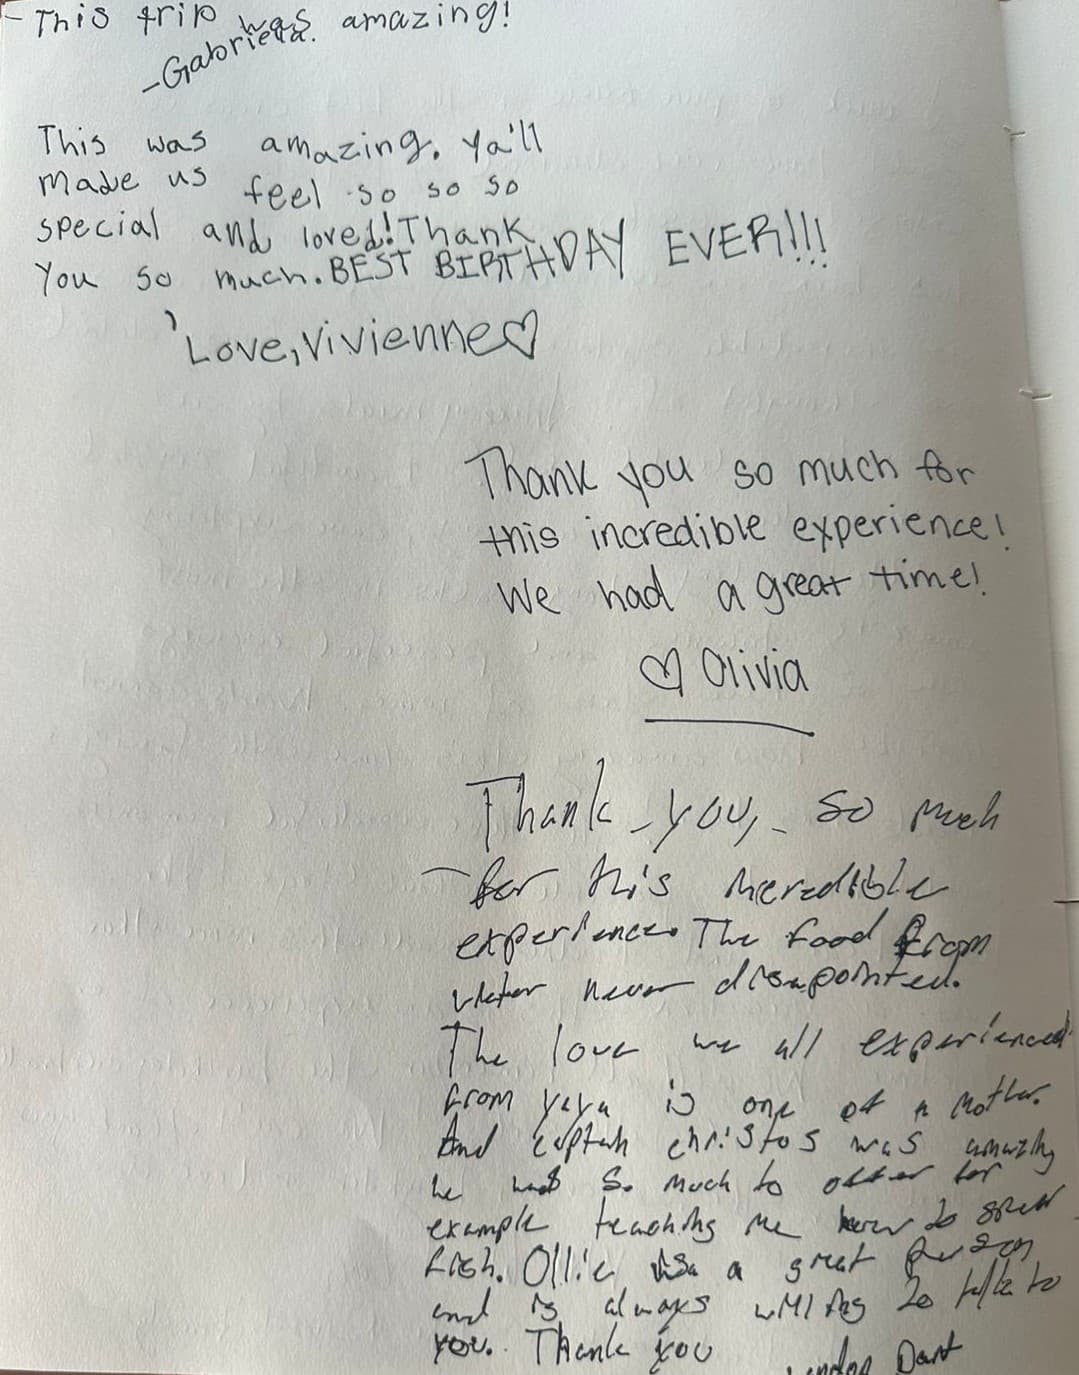 - This trip was amazing!
-Gabriela.
This was amazing. Ya'll
made us feel so so so
special and loved! Thank
You so much. BEST BIRTHDAY EVER!!!
Love, Vivienne♡
Thank you so much for
this incredible experience!
We had a great time!
♡ Olivia
Thank you, so much
for this incredible
experience. The food from
victor never disapointed.
The love we all experienced
from yaya is one of a mother.
And captain christos was amazing
he had so much to offer for
example teaching me how to spear
fish. Ollie is a great person
and is always willing to talk to
you. Thank you